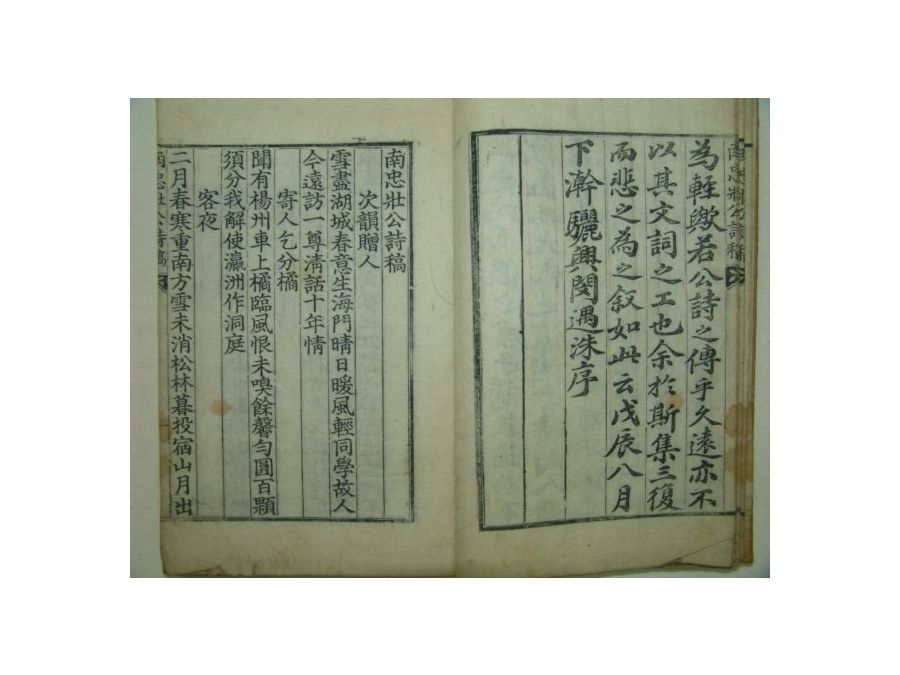 南忠壯公詩稿
為輕歟若公詩之傳乎久遠亦不
以其文詞之工也余於斯集三復
而悲之為之叙如此云戊辰八月
下澣驪興閔遇洙序
南忠壯公詩稿
次韻贈人
雪盡湖城春意生海門晴日暖風輕同學故人
今遠訪一尊淸話十年情
寄人乞分橘
聞有楊州車上橘臨風恨未嗅餘馨勻圓百顆
須分我解使瀛洲作洞庭
客夜
二月春寒重南方雪未消松林暮投宿山月出
南忠壯公詩稿